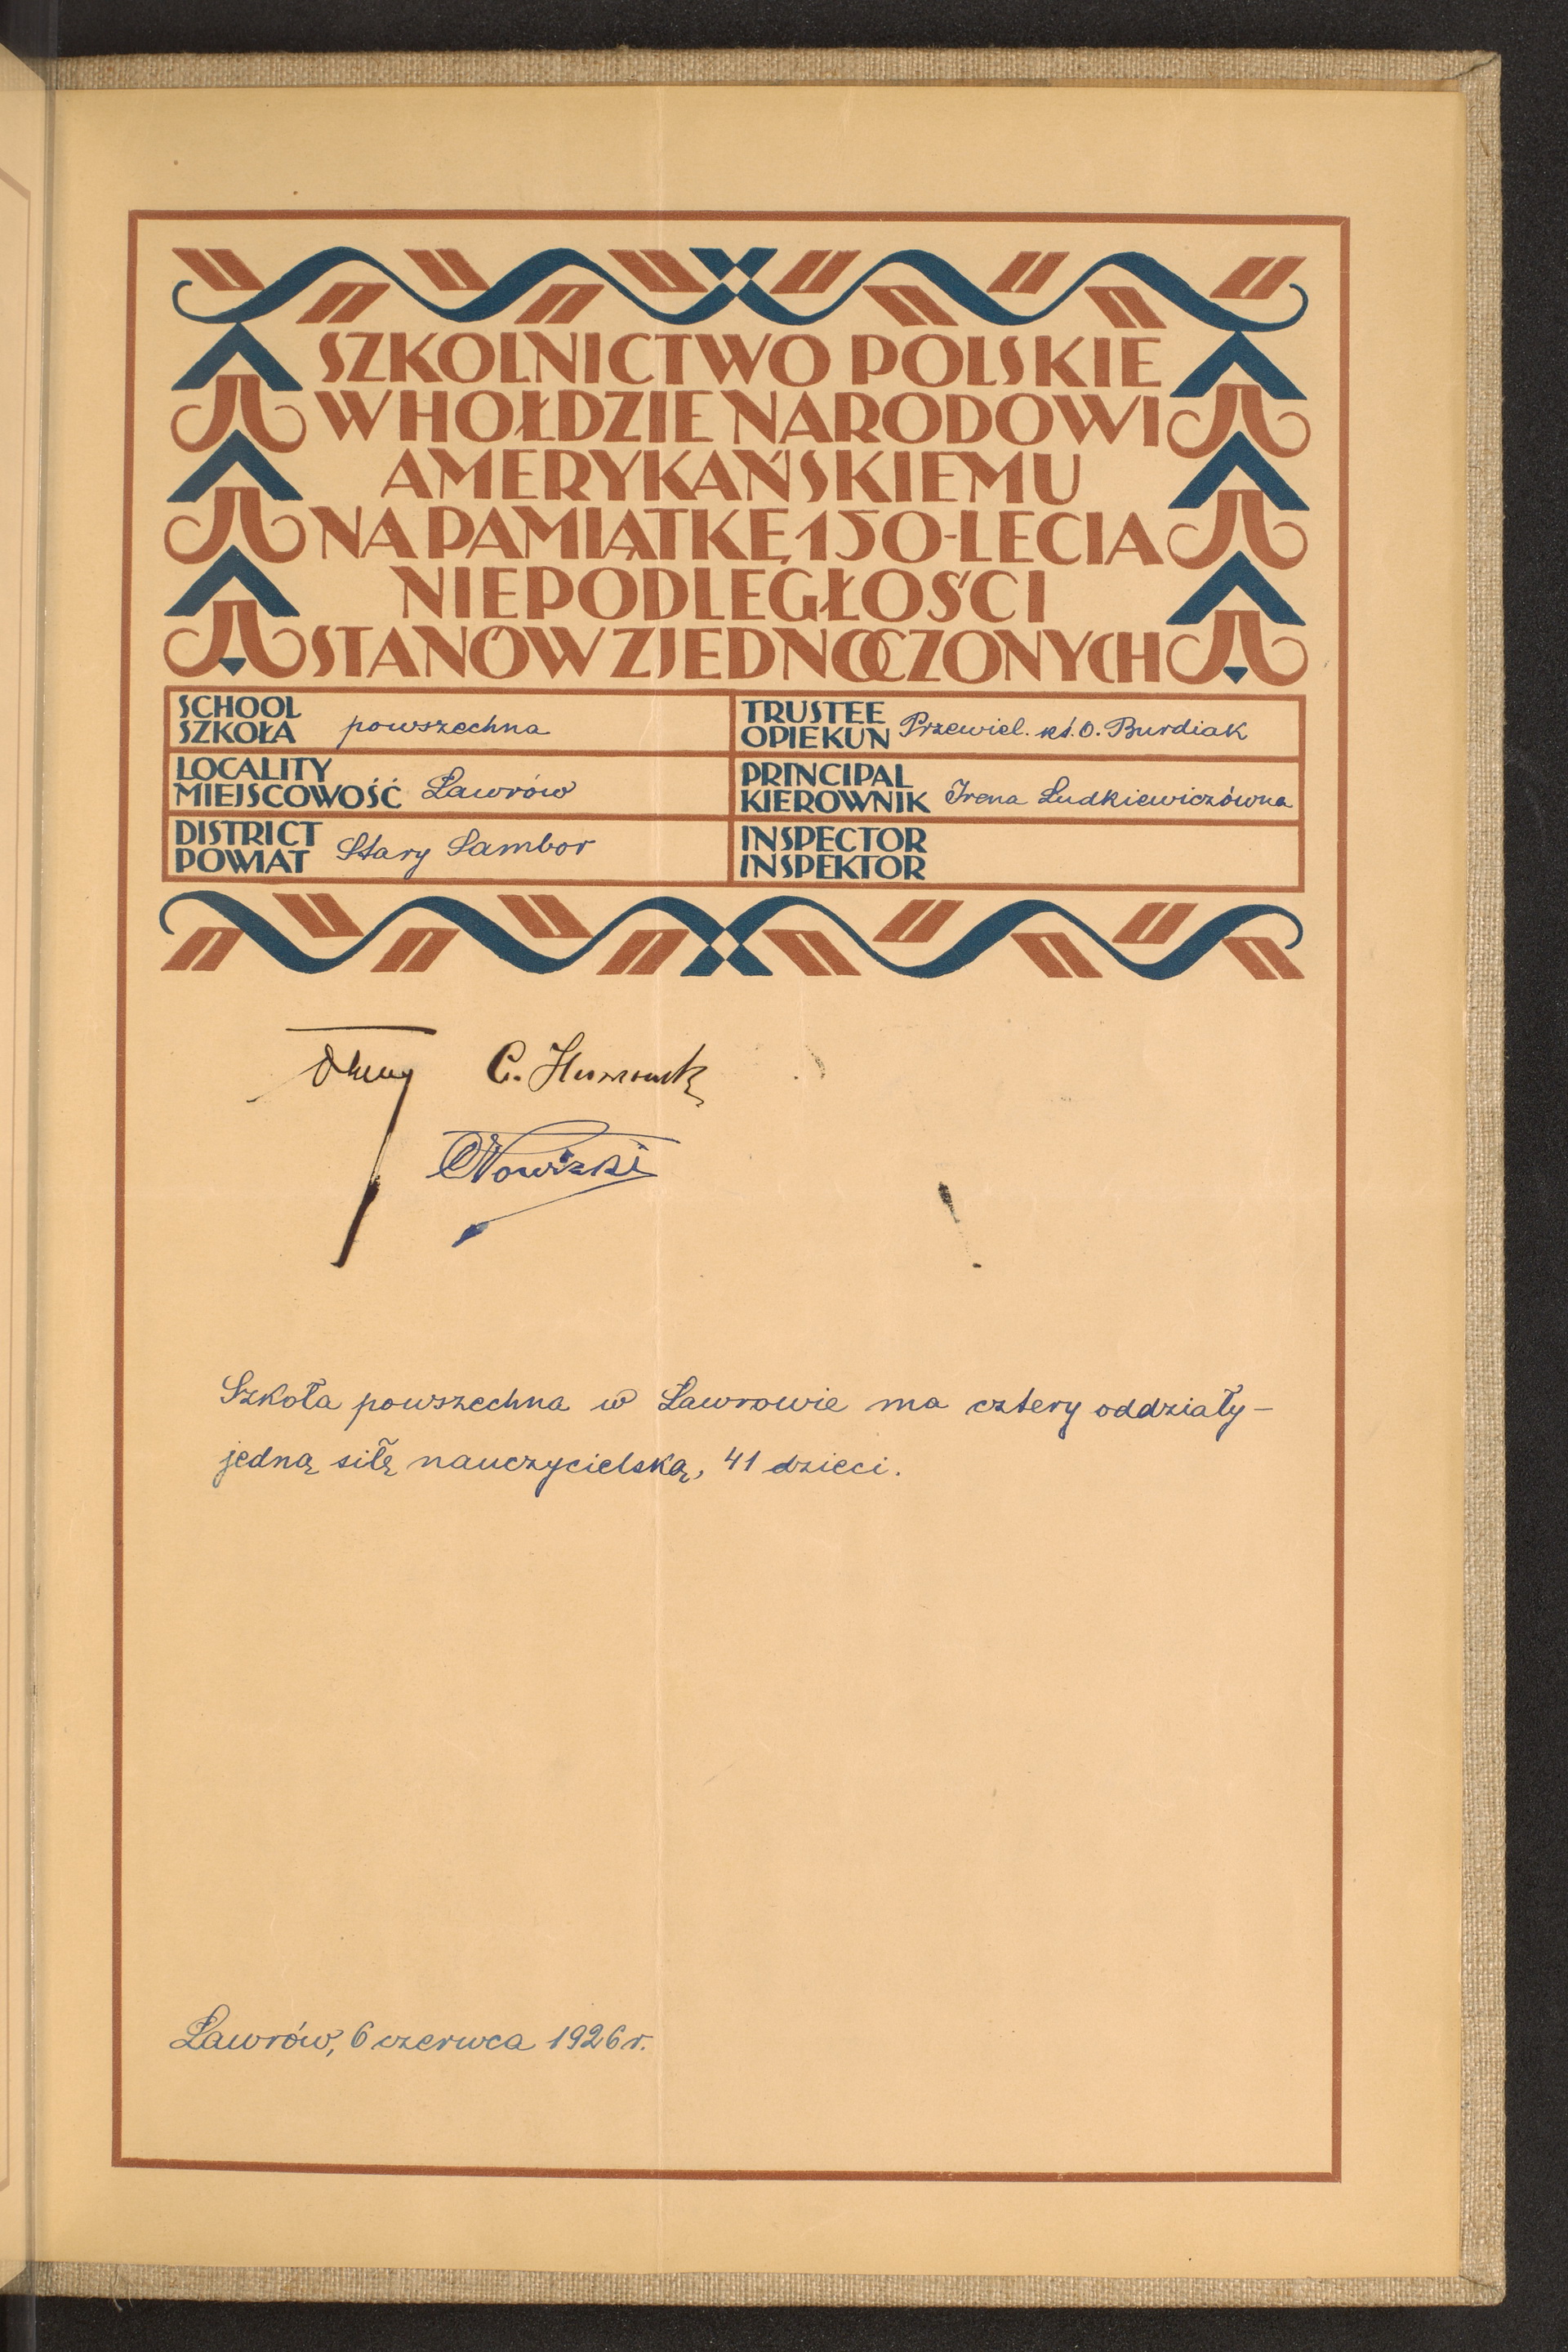 SZKOLNICTWO POLSKIE
W HOŁDZIE NARODOWI
AMERYKAŃSKIEMU
NA PAMIĄTKĘ 150-LECIA
NIEPODLEGŁOŚCI
STANÓW ZJEDNOCZONYCH
SCHOOL
SZKOŁA powszechna
TRUSTEE
OPIEKUN Przewiel. ks. O. Burdiak
LOCALITY
MIEJSCOWOŚĆ Ławrów
PRINCIPAL
KIEROWNIK Irena Ludkiewiczówna
DISTRICT
POWIAT Stary Sambor
INSPECTOR
INSPEKTOR
C.
Nowizki
Szkoła powszechna w Ławrowie ma cztery oddziały –
jedną siłę nauczycielską, 41 dzieci.
Ławrów, 6 czerwca 1926 r.